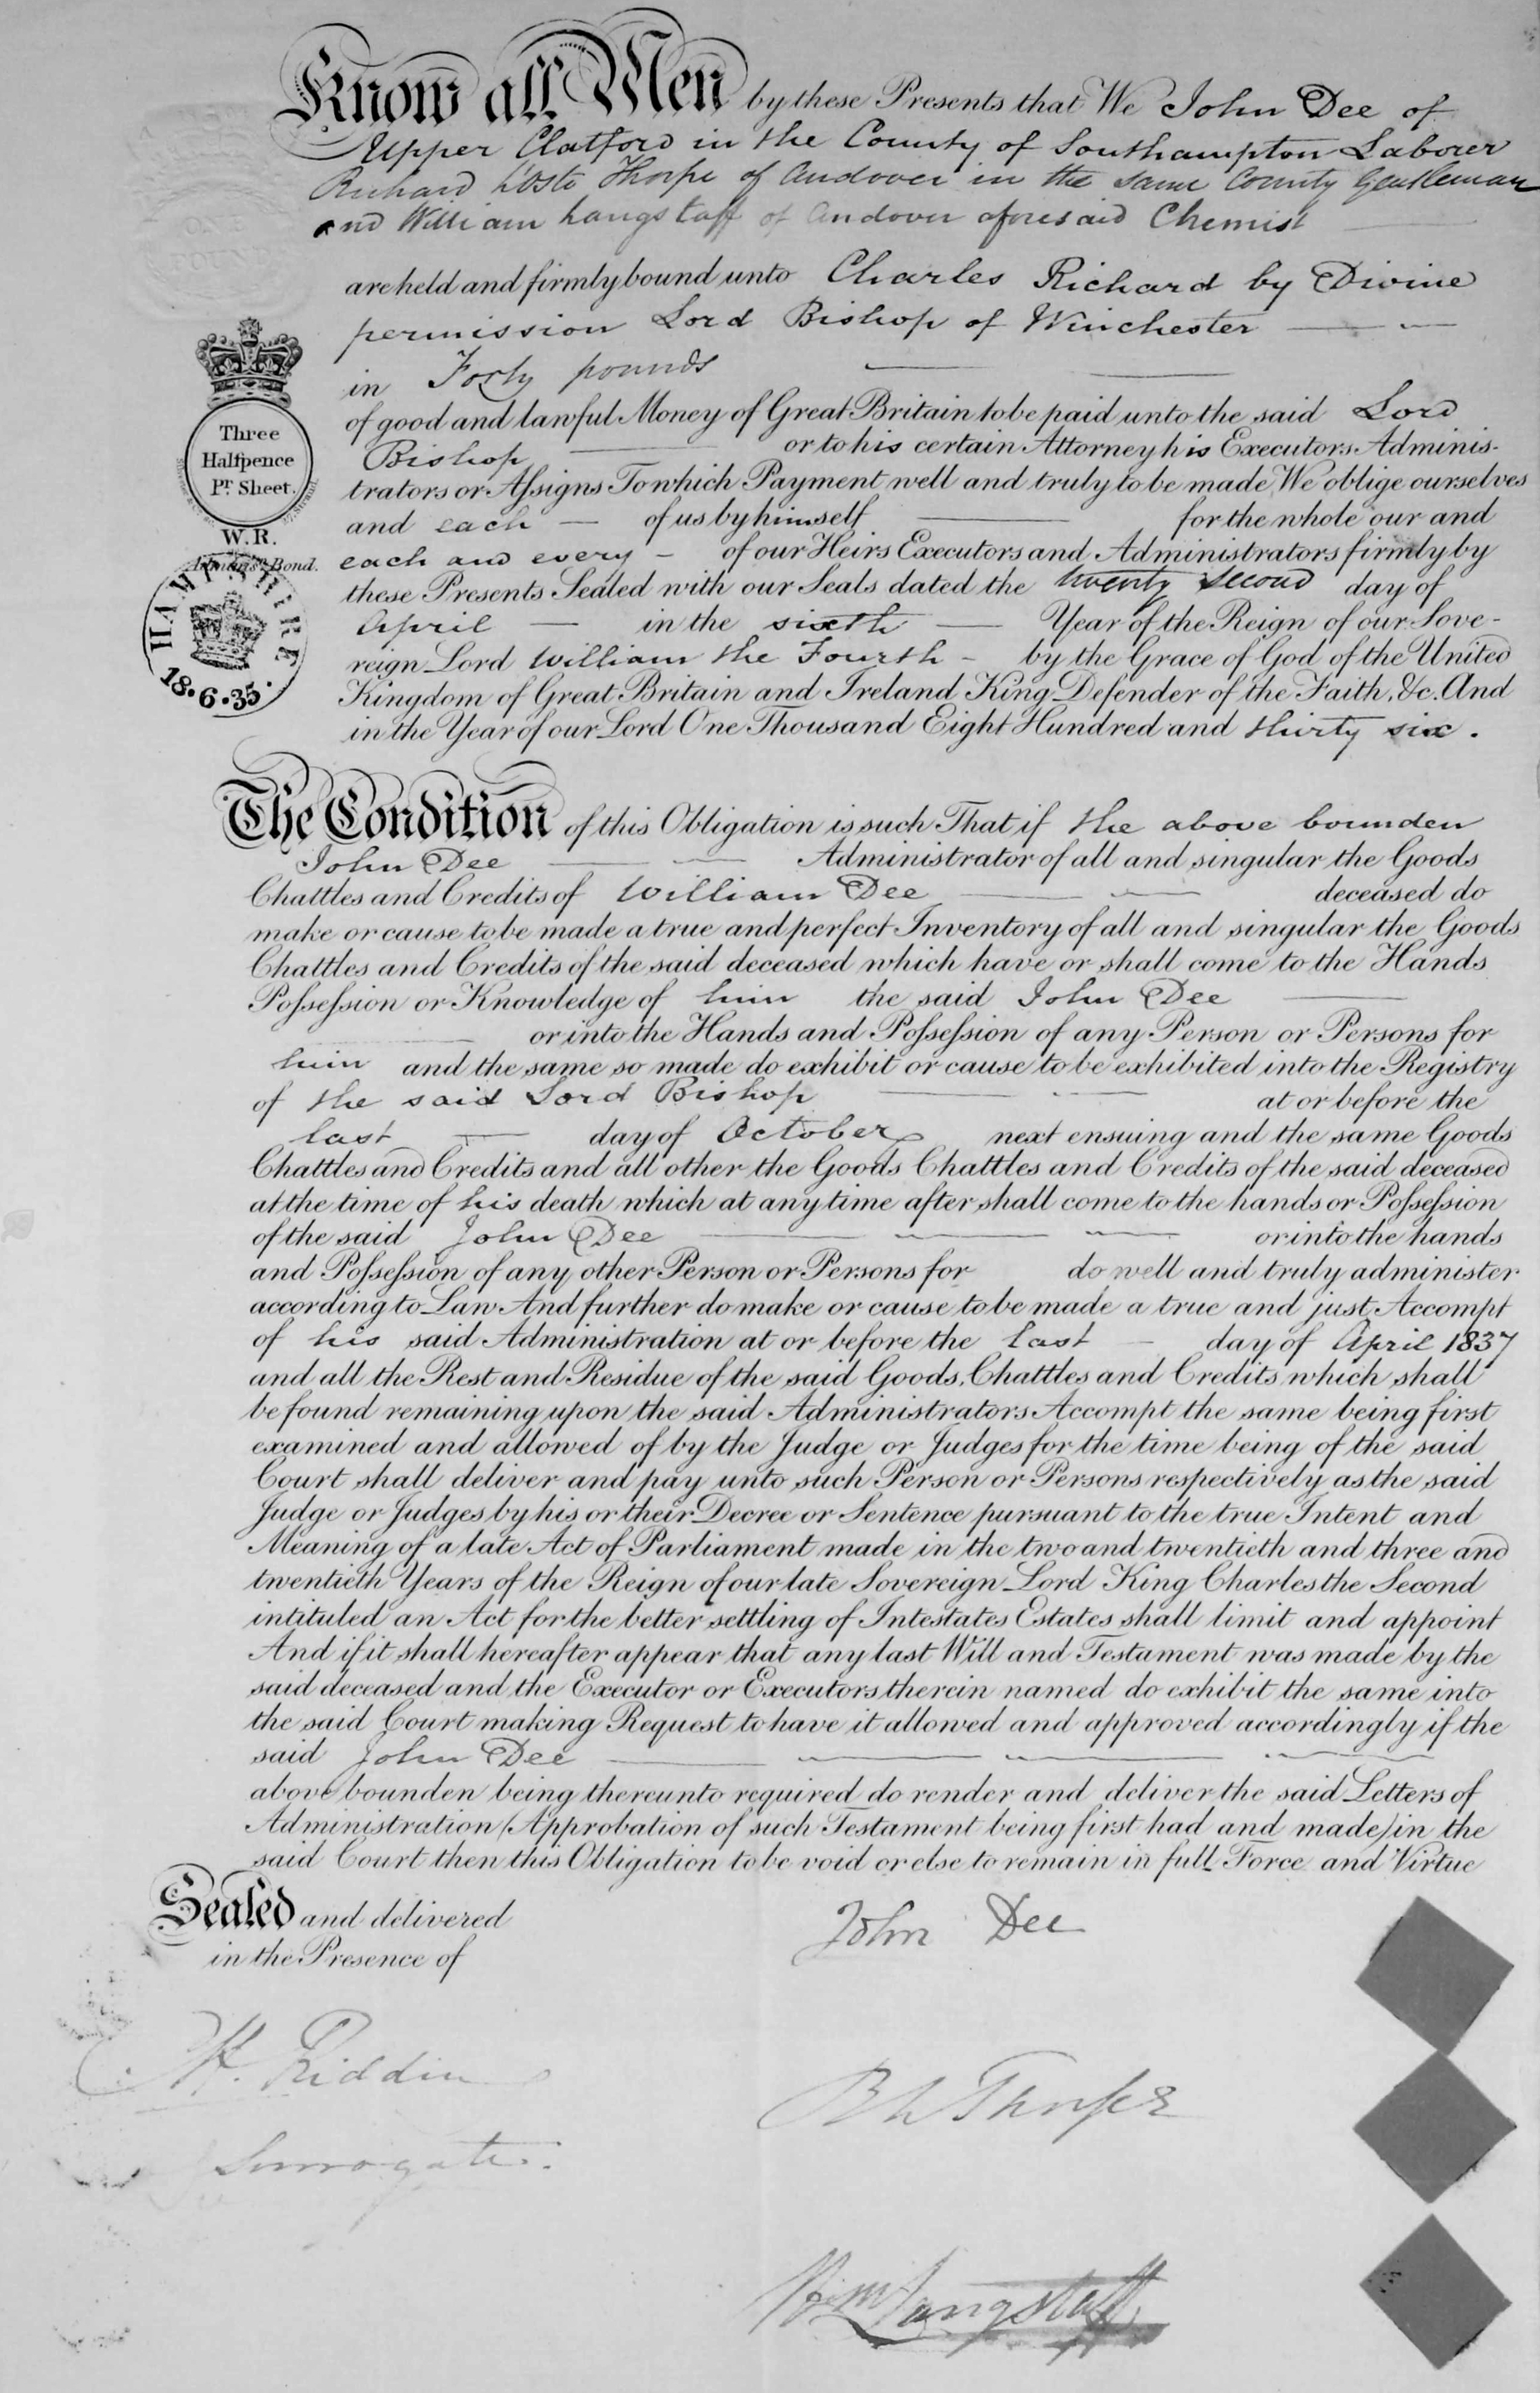 Know all Men by these Presents that We John Dee of
Upper Clatford in the County of Southampton Laborer
Richard L'Oste Thorpe of Andover in the same County Gentleman
and William Langstaff of Andover aforesaid Chemist
are held and firmly bound unto Charles Richard by Divine
permission Lord Bishop of Winchester
in Forty pounds
of good and lawful Money of Great Britain to be paid unto the said Lord
Bishop or to his certain Attorney his Executors Adminis-
trators or Assigns To which Payment well and truly to be made We oblige ourselves
and each of us by himself for the whole our and
each and every of our Heirs Executors and Administrators firmly by
these Presents Sealed with our Seals dated the twenty second day of
April in the sixth Year of the Reign of our Sove-
reign Lord William the Fourth by the Grace of God of the United
Kingdom of Great Britain and Ireland King Defender of the Faith, &c. And
in the Year of our Lord One Thousand Eight Hundred and thirty six.
Three
Halfpence
Pr. Sheet.
W.R.
Bond.
HAMPSHIRE
18.6.35.
The Condition of this Obligation is such That if the above bounden
John Dee Administrator of all and singular the Goods
Chattles and Credits of William Dee deceased do
make or cause to be made a true and perfect Inventory of all and singular the Goods
Chattles and Credits of the said deceased which have or shall come to the Hands
Possession or Knowledge of him the said John Dee
or into the Hands and Possession of any Person or Persons for
him and the same so made do exhibit or cause to be exhibited into the Registry
of the said Lord Bishop at or before the
last day of October next ensuing and the same Goods
Chattles and Credits and all other the Goods Chattles and Credits of the said deceased
at the time of his death which at any time after shall come to the hands or Possession
of the said John Dee or into the hands
and Possession of any other Person or Persons for do well and truly administer
according to Law And further do make or cause to be made a true and just Accompt
of his said Administration at or before the last day of April 1837
and all the Rest and Residue of the said Goods, Chattles and Credits which shall
be found remaining upon the said Administrators Accompt the same being first
examined and allowed of by the Judge or Judges for the time being of the said
Court shall deliver and pay unto such Person or Persons respectively as the said
Judge or Judges by his or their Decree or Sentence pursuant to the true Intent and
Meaning of a late Act of Parliament made in the two and twentieth and three and
twentieth Years of the Reign of our late Sovereign Lord King Charles the Second
intituled an Act for the better settling of Intestates Estates shall limit and appoint
And if it shall hereafter appear that any last Will and Testament was made by the
said deceased and the Executor or Executors therein named do exhibit the same into
the said Court making Request to have it allowed and approved accordingly if the
said John Dee
above bounden being thereunto required do render and deliver the said Letters of
Administration (Approbation of such Testament being first had and made) in the
said Court then this Obligation to be void or else to remain in full Force and Virtue
Sealed and delivered
in the Presence of
John Dee
Riddin
Surrogate.
R L Thorpe
Wm Langstaff